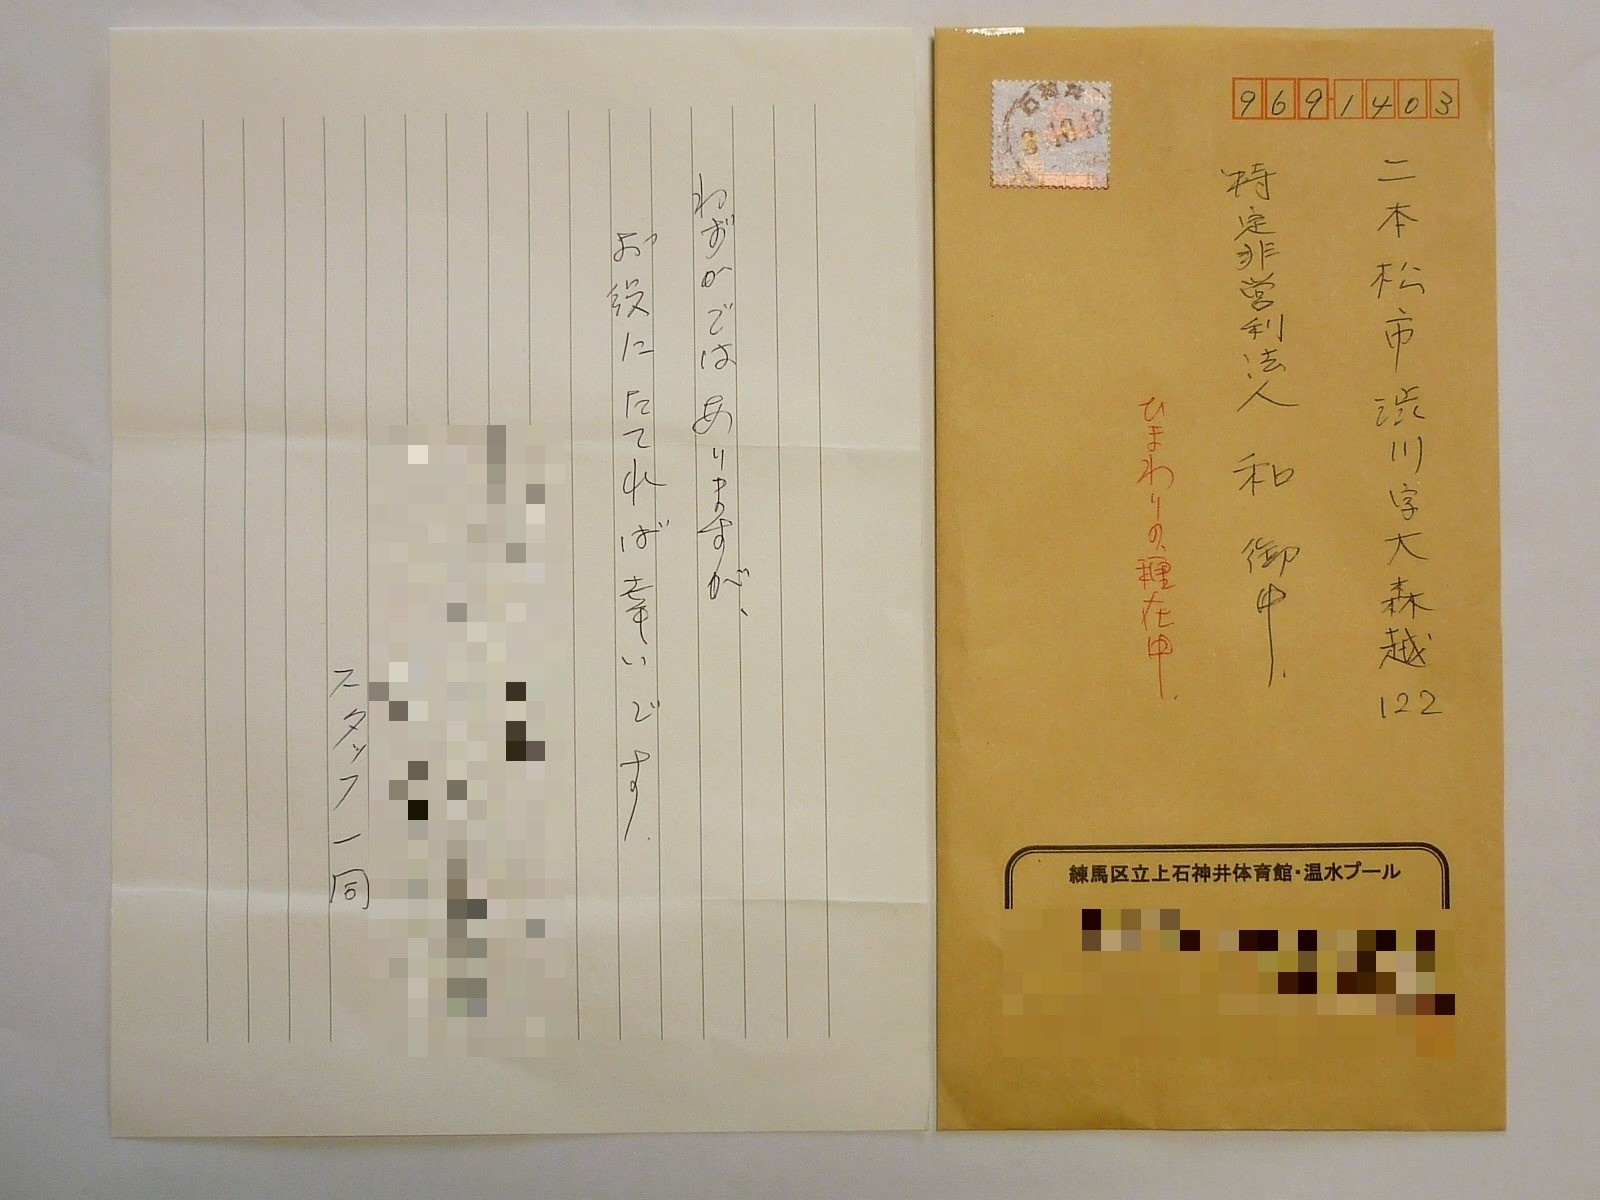 わずかではありますが、
お役にたてれば幸いです.
スタッフ一同
石神井
9691403
二本松市渋川字大森越122
特定非営利法人 和 御中.
ひまわりの種在中.
練馬区立上石神井体育館・温水プール